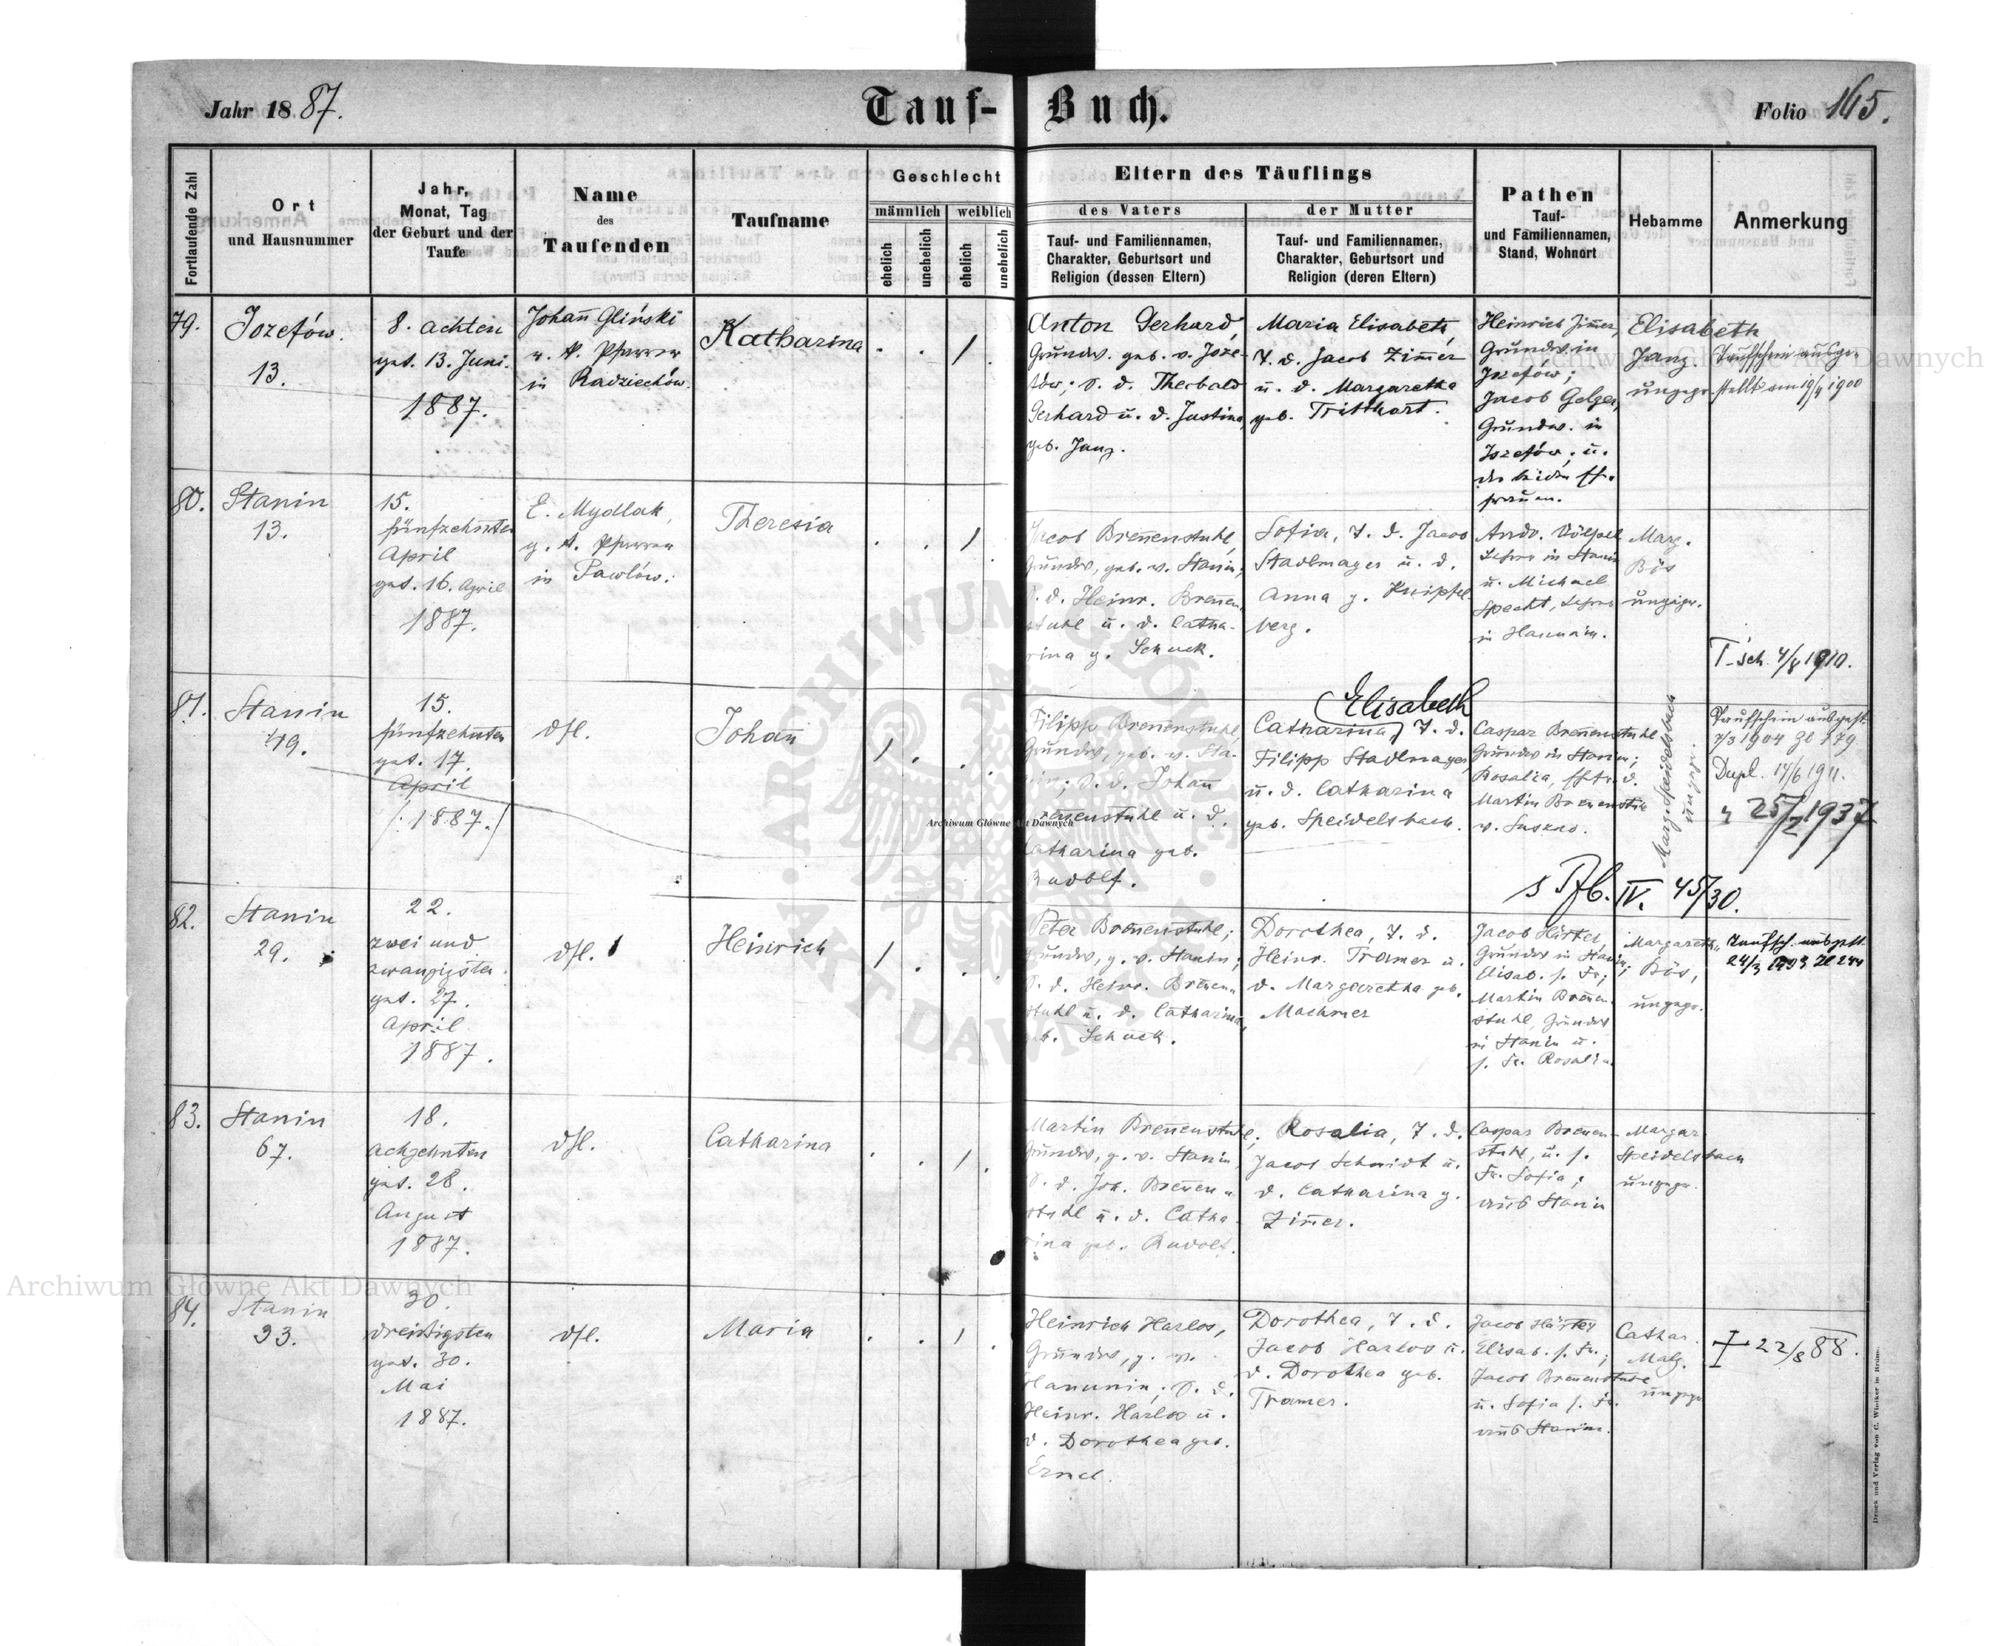 Jahr 1887.
Tauf-Buch.
Folio 165.
Fortlaufende Zahl
Ort
und Hausnummer
Jahr,
Monat, Tag
der Geburt und der
Taufe
Name
des
Taufenden
Taufname
Geschlecht
männlich
weiblich
ehelich
unehelich
ehelich
unehelich
Eltern des Täuflings
des Vaters
Tauf- und Familiennamen,
Charakter, Geburtsort und
Religion (dessen Eltern)
der Mutter
Tauf- und Familiennamen,
Charakter, Geburtsort und
Religion (deren Eltern)
Pathen
Tauf-
und Familiennamen,
Stand, Wohnort
Hebamme
Anmerkung
79.
Jozefów.
13.
8. achten
get. 13. Juni.
1887.
Johan̄ Gliński
ev. A. Pfarrer
in Radziechów.
Katharina
Anton Gerhard,
Grundw. geb. v. Joze-
fów; S. d. Theobald
Gerhard u. d. Justina,
geb. Janz.
Maria Elisabeth,
T. d. Jacob Zim̄er
u. d. Margaretha
geb. Tritthart.
Heinrich Zim̄er,
Grundw. in
Jozefów;
Jacob Gelger,
Grundw. in
Jozefów; u.
die beiden Eh-
frauen.
Elisabeth
Janz
ungepr.
Taufschein ausge-
stellt am 19/4 1900
80.
Stanin
13.
15.
fünfzehnten
April
get. 16. April
1887.
E. Mydlak,
g. A. Pfarrer
in Pawlów.
Theresia
Jacob Bren̄enstuhl,
Grundw, geb. v. Stanin;
S. d. Heinr. Bren̄en-
stuhl u. d. Catha-
rina g. Schuck.
Sofia, T. d. Jacob
Stadlmayer u. d.
Anna g. Knipfel
berg.
Andr. Völpel
Lehrer in Stanin
u. Michael
Specht, Lehrer
in Hanunin.
Marg.
Bös
ungepr.
T-sch. 4/8 1910.
81.
Stanin
49.
15.
fünfzehnten
get. 17.
April
/: 1887. :/
dsl.
Johan̄
Filipp Bren̄enstuhl
Grundw, geb. v. Sta-
nin; S. d. Johan̄
Bren̄enstuhl u. d.
Catharina geb.
Rudolf.
Elisabeth
Catharina, T. d.
Filipp Stadlmayer
u. d. Catharina
geb. Speidelsbach.
Caspar Bren̄enstuhl
Grundw in Stanin;
Rosalia, Ehfr. d.
Martin Bren̄enstuhl
v. Suszno.
Marg. Speidelsbach
ungepr.
Taufschein ausgest.
7/3 1904 Zl 179
Dupl. 14/6 1911.
" 25/2 1937
s Pfb. IV. 45/30.
82.
Stanin
29.
22.
zwei und
zwanzigsten
get. 27.
April
1887.
dsl.
Heinrich
Peter Bren̄enstuhl;
Grundw, g. v. Stanin;
S. d. Heinr. Bren̄en-
stuhl u. d. Catharina
geb. Schuck.
Dorothea, T. d.
Heinr. Tramer u.
d. Margaretha geb.
Machmer
Jacob Härter,
Grundw in Stanin;
Elisab. s. Fr.;
Martin Bren̄en-
stuhl, Grundw
in Stanin u.
s. Fr. Rosalia.
Margareth.
Bös,
ungepr.
Taufsch. ausgest.
24/3 1893 Zl 244
83.
Stanin
67.
18.
achzehnten
get. 28.
August
1887.
dsl.
Catharina
Martin Bren̄enstuhl,
Grundw, g. v. Stanin,
S. d. Joh. Bren̄en-
stuhl u. d. Catha-
rina geb. Rudolf.
Rosalia, T. d.
Jacob Schmidt u.
d. Catharina g.
Zim̄er.
Caspar Bren̄en-
stuhl, u. s.
Fr. Sofia;
aus Stanin
Margar.
Speidelsbach
ungepr.
84.
Stanin
93.
30.
dreißigsten
get. 30.
Mai
1887.
dsl.
Maria
Heinrich Harlos,
Grundw, g. v.
Hanunin; S. d.
Heinr. Harlos u.
d. Dorothea geb.
Ernel.
Dorothea, T. d.
Jacob Harlos u.
d. Dorothea geb.
Tramer.
Jacob Härter
Elisab. s. Fr.;
Jacob Bren̄enstuhl
u. Sofia s. Fr.
aus Stanin.
Cathar.
Malz.
ungepr.
† 22/8 88.
Druck und Verlag von C. Winiker in Brünn.
ARCHIWUM GŁÓWNE AKT DAWNYCH
Archiwum Główne Akt Dawnych
Archiwum Główne Akt Dawnych
Archiwum Główne Akt Dawnych